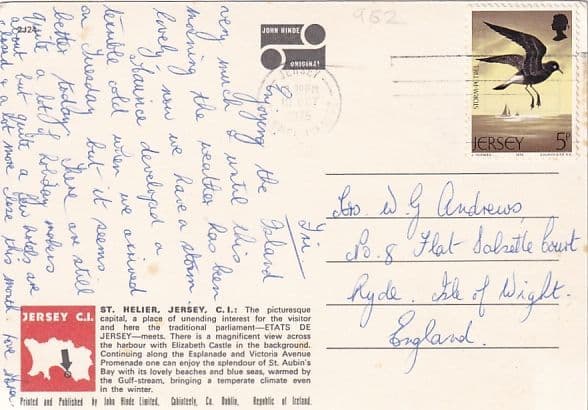 2J24
JOHN HINDE
ORIGINAL
962
JERSEY
STORM PETREL
JERSEY 5P
Fri
Enjoying the Island
very much & until this
morning the weather has been
lovely, now we have a storm
Maurice developed a
terrible cold when we arrived
on Tuesday but it seems
better today. There are still
Quite a lot of holiday makers
about but Quite a few hotels are
closed & a lot more close this month. Love
Mrs. W G Andrews,
No. 8 Flat Salsette Court
Ryde. Isle of Wight.
England.
JERSEY C.I.
ST. HELIER, JERSEY, C.I.: The picturesque
capital, a place of unending interest for the visitor
and here the traditional parliament—ETATS DE
JERSEY—meets. There is a magnificent view across
the harbour with Elizabeth Castle in the background.
Continuing along the Esplanade and Victoria Avenue
Promenade one can enjoy the splendour of St. Aubin's
Bay with its lovely beaches and blue seas, warmed by
the Gulf-stream, bringing a temperate climate even
in the winter.
Printed and Published by John Hinde Limited, Cabinteely, Co. Dublin, Republic of Ireland.